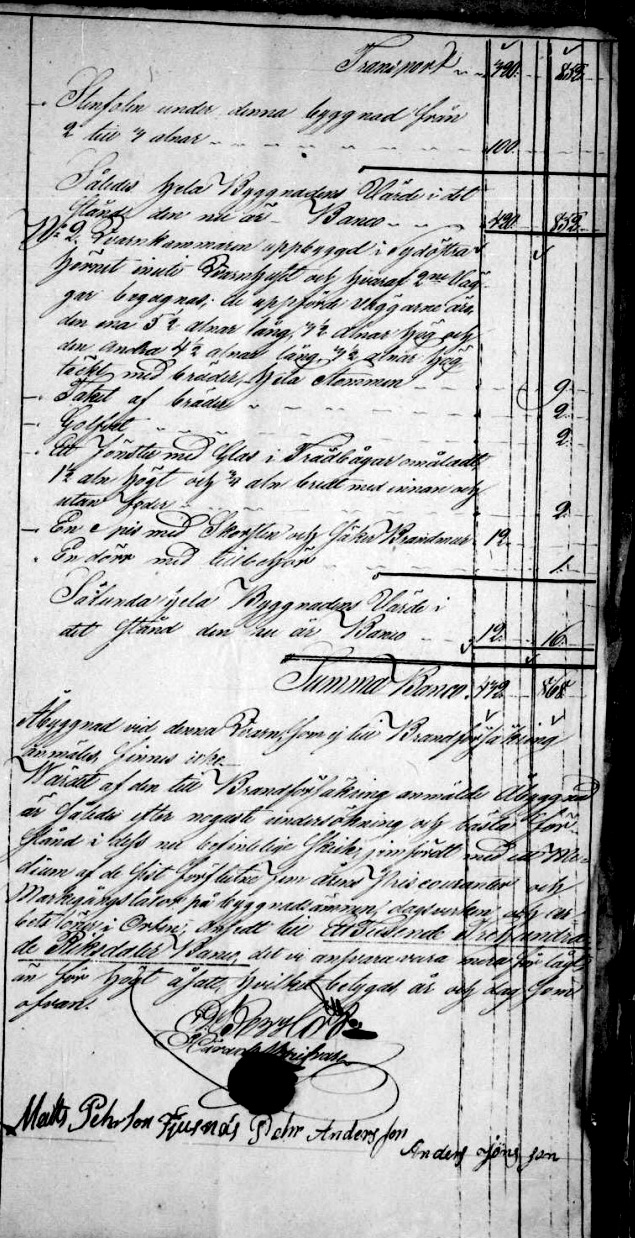 Transport 320. 852.
Stenfoten under denna byggnad från
2 till 4 alnar 100.
Således hela Byggnadens Värde i det
Stånd den nu är Banco 420. 852.
N:o 2. Qvarnkammaren uppbyggd i sydöstra
hörnet inuti Qvarnhuset och hvaraf 2:ne Väg-
gar begagnas; de uppförde väggarne äro
den ena 5½ alnar lång, 3½ alnar hög och
den andra 4½ alnar lång, 3½ alnar hög
täckt med bräder, hela Stommen 9.
Taket af bräder 2.
Golfvet 2.
Ett Fönster med Glas i Träbågar omåladt
1½ aln högt och ¾ aln bredt med innan och
utan foder 2.
En Spis med Skorsten och säker Brandmur 12.
En dörr med tillbehör 1.
Sålunda hela Byggnadens Värde i
det Stånd den nu är Banco 12. 16.
Summa Banco. 432. 868.
Åbyggnad vid denna Qvarn, som ej till Brandförsäkring
anmäles, finnes icke.
Wärdet af den till Brandförsäkring anmälde Åbyggnad
är således efter noggrann undersökning och bästa för-
stånd i dess nu befintlige skick, jemfördt med ett Me-
dium af de sist förflutne fem årens Priscouranter och
Markegångstaxor på byggnadsämnen, dagsverken, och ar-
betslöner i Orten, ansedt till Ett Tusende Trehundra-
de Riksdaler Banco, det vi ansvara vara mera för lågt
än för högt åsatt, hvilket betygas, år och dag som
ofvan.
Häradsskrifvare
Matts Pehrson Pehr Andersson
Anders Jönsson